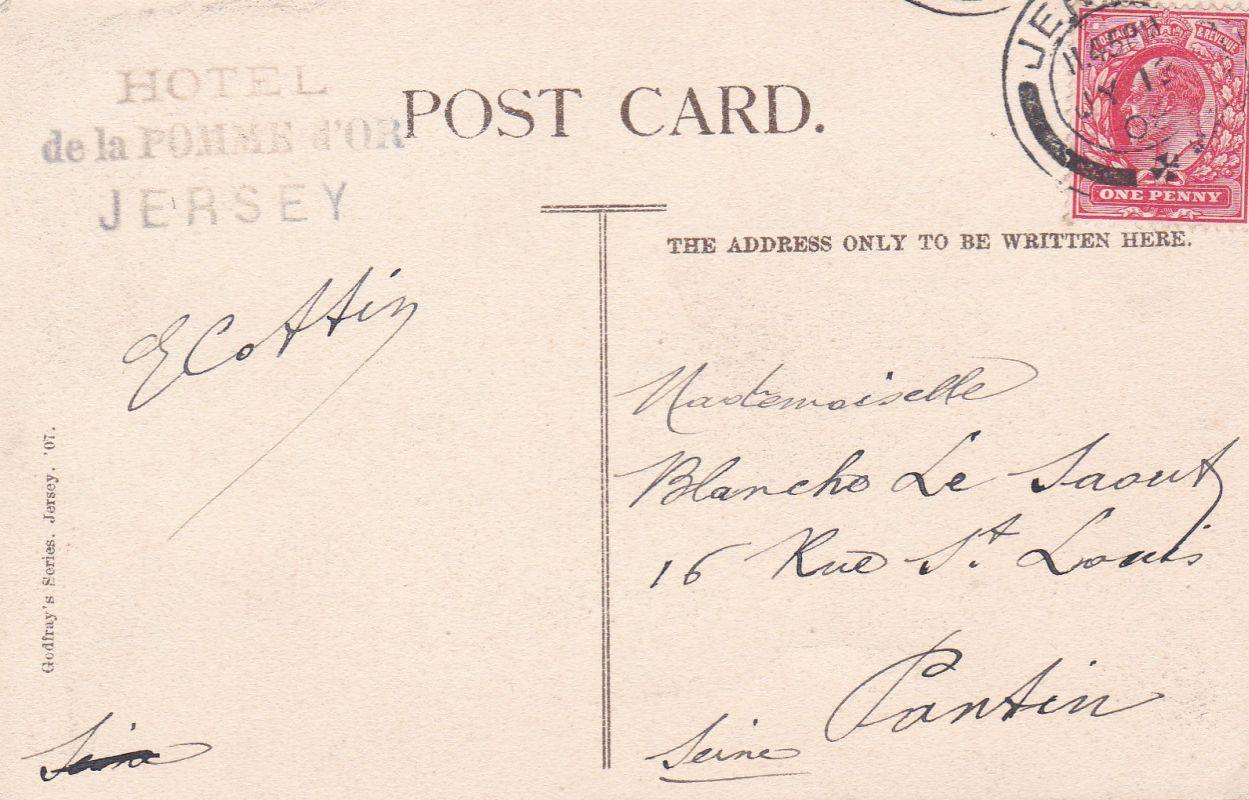 HOTEL
de la POMME d'OR
JERSEY
POST CARD.
JER
11.45PM
12
POSTAGE & REVENUE
ONE PENNY
THE ADDRESS ONLY TO BE WRITTEN HERE.
E Cottin
Mademoiselle
Blanche Le Saout
16 Rue St. Louis
Pantin
Seine
Seine
Godfray's Series. Jersey. '07.